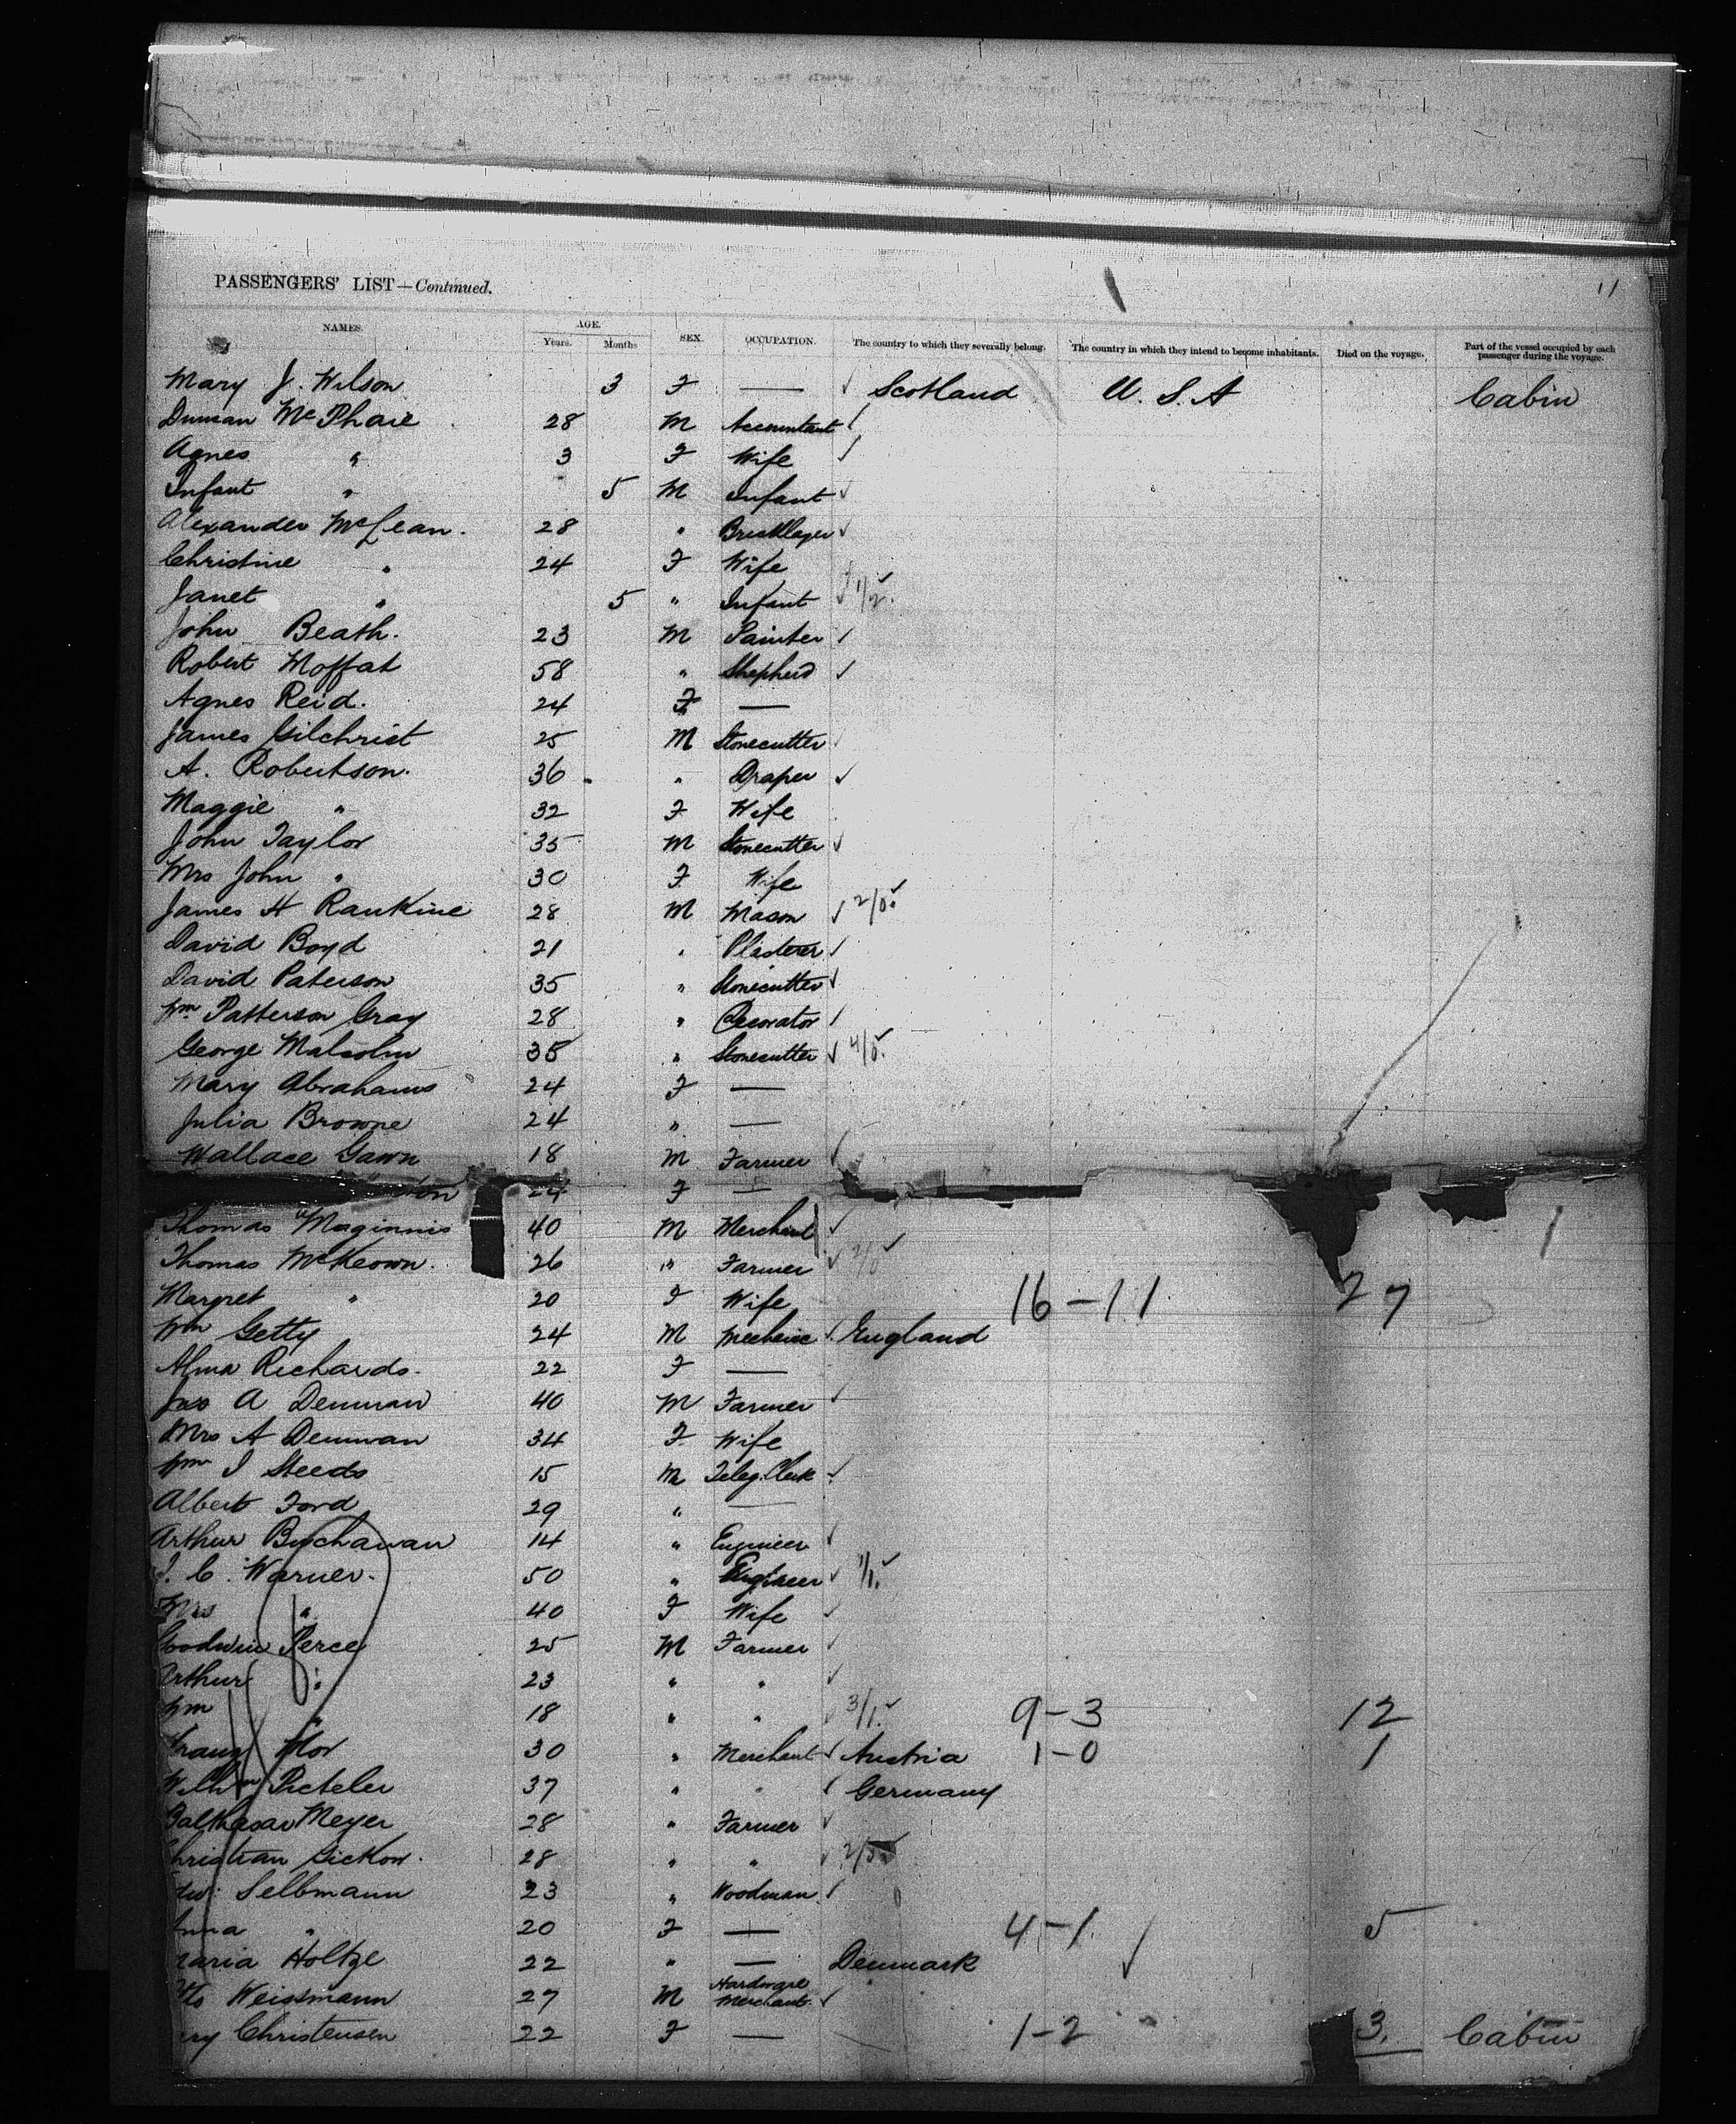 PASSENGERS' LIST—Continued.
11
NAMES. AGE. SEX. OCCUPATION. The country to which they severally belong. The country in which they intend to become inhabitants. Died on the voyage. Part of the vessel occupied by each passenger during the voyage.
Years. Months
Mary J. Wilson 3 F — Scotland U.S.A Cabin
Duncan McPhaie 28 M Accountant
Agnes " 3 F Wife
Infant " 5 M Infant
Alexander McLean. 28 " Bricklayer
Christine " 24 F Wife
Janet " 5 " Infant 1/2.
John Beath. 23 M Painter
Robert Moffat 58 " Shepherd
Agnes Reid. 24 F —
James Gilchrist 25 M Stonecutter
A. Robertson. 36 " Draper
Maggie " 32 F Wife
John Taylor 35 M Stonecutter
Mrs John " 30 F Wife
James H Rankine 28 M Mason 2/0.
David Boyd 21 " Plasterer
David Paterson 35 " Stonecutter
Wm Patterson Gray 28 " Decorator
George Malcolm 35 " Stonecutter 4/0.
Mary Abrahams 24 F —
Julia Browne 24 " —
Wallace Gawn 18 M Farmer
24 F —
Thomas Maginnis 40 M Merchant
Thomas McKeown. 26 " Farmer 2/0
Margret " 20 F Wife 16-11 27
Wm Getty 24 M Mechanic England
Alma Richards. 22 F —
Jas A Denman 40 M Farmer
Mrs A Denman 34 F Wife
Wm J Steeds 15 M Teleg. Clerk
Albert Ford 29 " —
Arthur Buchanan 14 " Engineer
J. C. Warner. 50 " Engineer 1/1.
Mrs " 40 F Wife
Goodwin Perce 25 M Farmer
Arthur " 23 " "
Wm " 18 " " 3/1. 9-3 12
Franz Flor 30 " Merchant Austria 1-0 1
Wilhm Picteler 37 " " Germany
Balthasar Meyer 28 " Farmer
Christian Gickow. 28 " "
Selbmann 23 " Woodman
Anna " 20 F — 4-1. 5
Maria Holtze 22 " — Denmark
Otto Weissmann 27 M Hardware Merchant.
Christensen 22 F — 1-2 3. Cabin